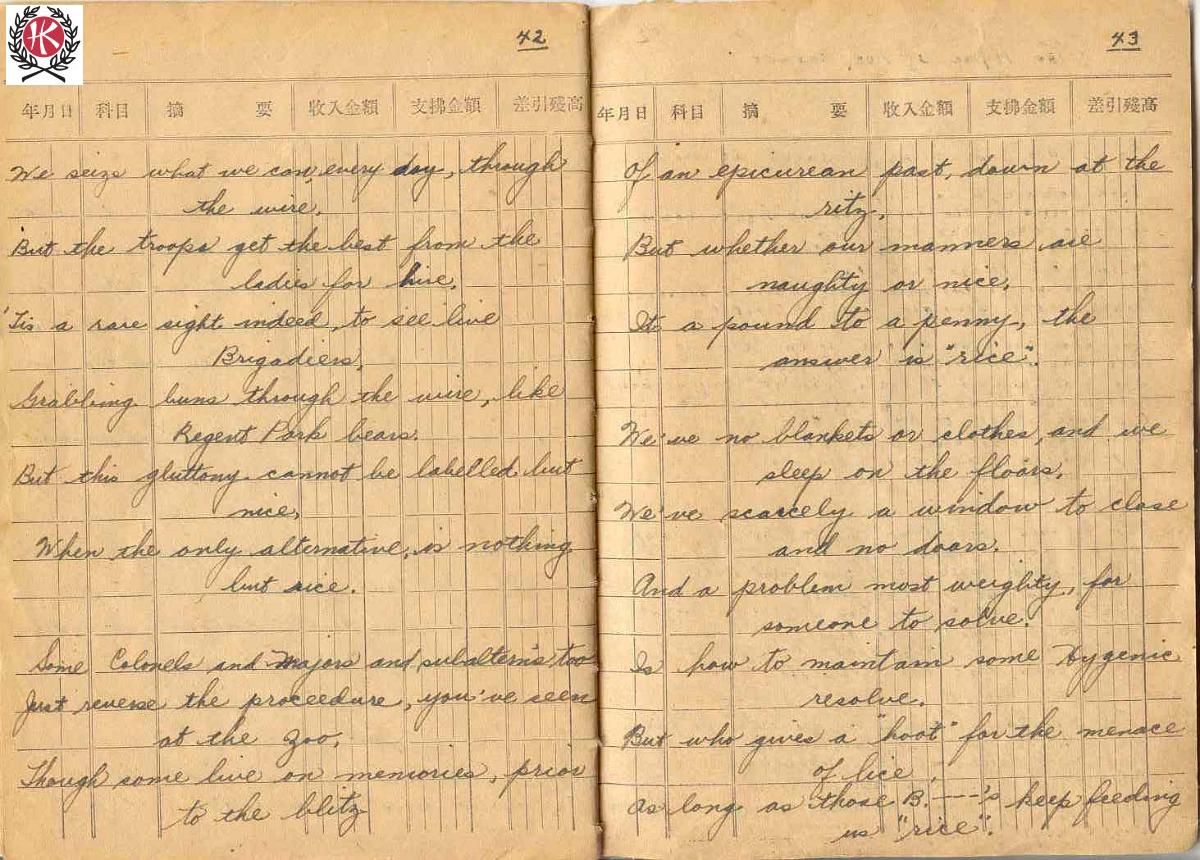 HK
42
年月日 科目 摘 要 收入金額 支拂金額 差引殘高
We seize what we can, every day, through
the wire.
But the troops get the best from the
ladies for hire.
'Tis a rare sight indeed, to see live
Brigadiers,
Grabbing buns through the wire, like
Regent Park bears.
But this gluttony cannot be labelled but
nice,
When the only alternative, is nothing
but rice.
Some Colonels and Majors and subaltern's too
Just reverse the proceedure, you've seen
at the zoo,
Though some live on memories, prior
to the blitz
43
年月日 科目 摘 要 收入金額 支拂金額 差引殘高
Of an epicurean past, down at the
ritz,
But whether our manners are
naughty or nice,
Its a pound to a penny, the
answer is "rice".
We've no blankets or clothes, and we
sleep on the floors,
We've scarcely a window to close
and no doors.
And a problem most weighty, for
someone to solve.
Is how to maintain some Hygenic
resolve.
But who gives a "hoot" for the menace
of lice,
As long as those B.----'s keep feeding
us "rice".